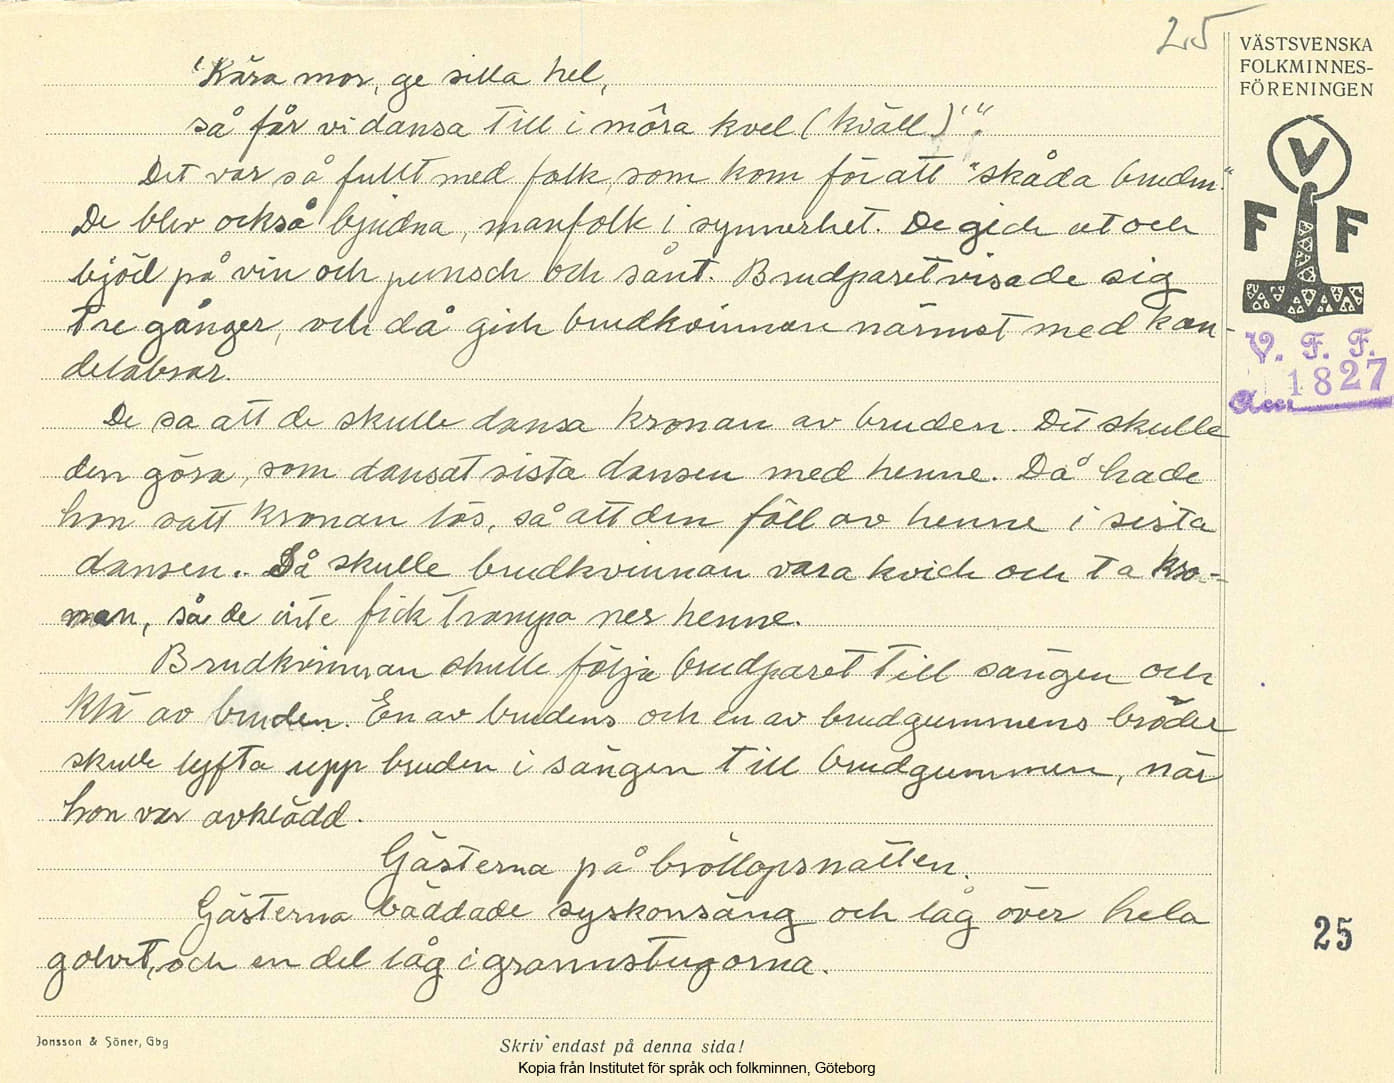 25
VÄSTSVENSKA
FOLKMINNES-
FÖRENINGEN
V
F F
V. F. F.
Acc 1827
'Kära mor, ge silla hel,
så får vi dansa till i môra kvel (kväll)'".
Det var så fullt med folk, som kom för att "skåda bruden."
De blev också bjudna, manfolk i synnerhet. De gick ut och
bjöd på vin och punsch och sånt. Brudparet visade sig
tre gånger, och då gick brudkvinnan närmst med kan-
delabrar.
De sa att de skulle dansa kronan av bruden. Det skulle
den göra, som dansat sista dansen med henne. Då hade
hon satt kronan lös, så att den föll av henne i sista
dansen. Så skulle brudkvinnan vara kvick och ta kro-
nan, så de inte fick trampa ner henne.
Brudkvinnan skulle följa brudparet till sängen och
klä av bruden. En av brudens och en av brudgummens bröder
skulle lyfta upp bruden i sängen till brudgummen, när
hon var avklädd.
Gästerna på bröllopsnatten.
Gästerna bäddade syskonsäng och låg över hela
golvet, och en del låg i grannstugorna.
25
Jonsson & Söner, Gbg
Skriv endast på denna sida!
Kopia från Institutet för språk och folkminnen, Göteborg